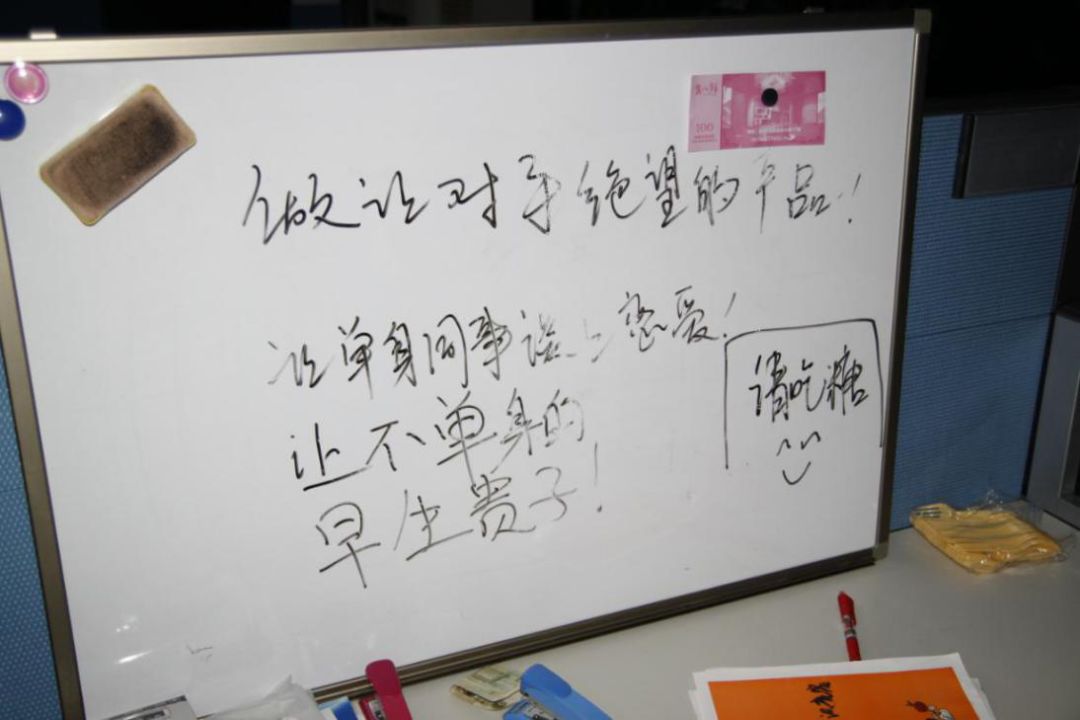 100
做让对手绝望的产品！
让单身同事谈上恋爱！
让不单身的
早生贵子！
请吃糖